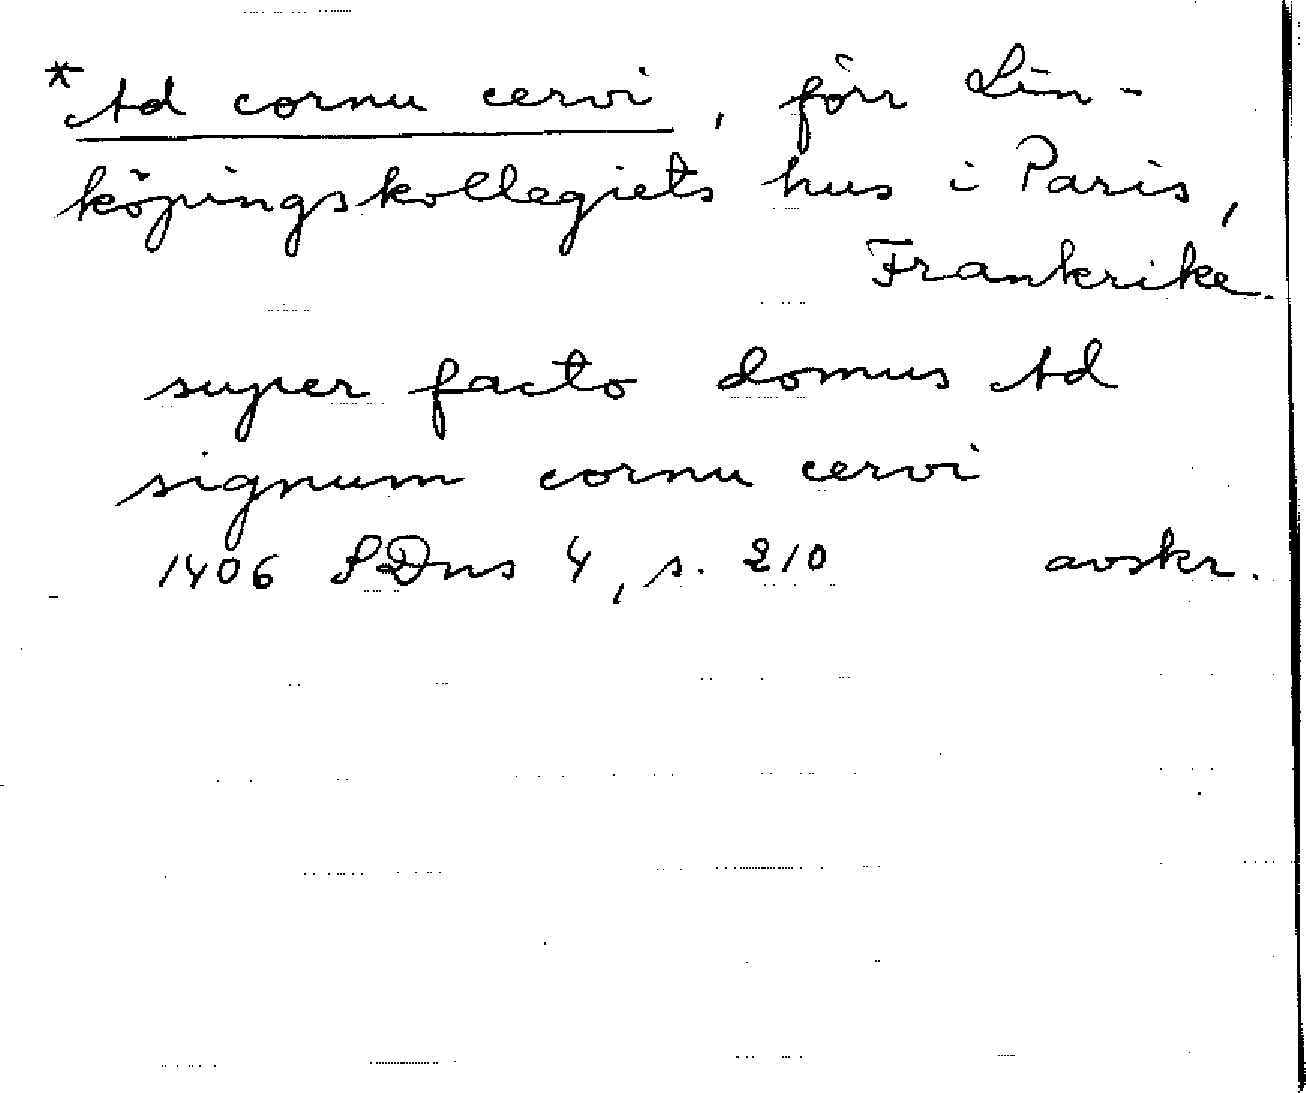 *Ad cornu cervi, förr Lin-
köpingskollegiets hus i Paris,
Frankrike.
super facto domus Ad
signum cornu cervi
1406 SDns 4, s. 210 avskr.